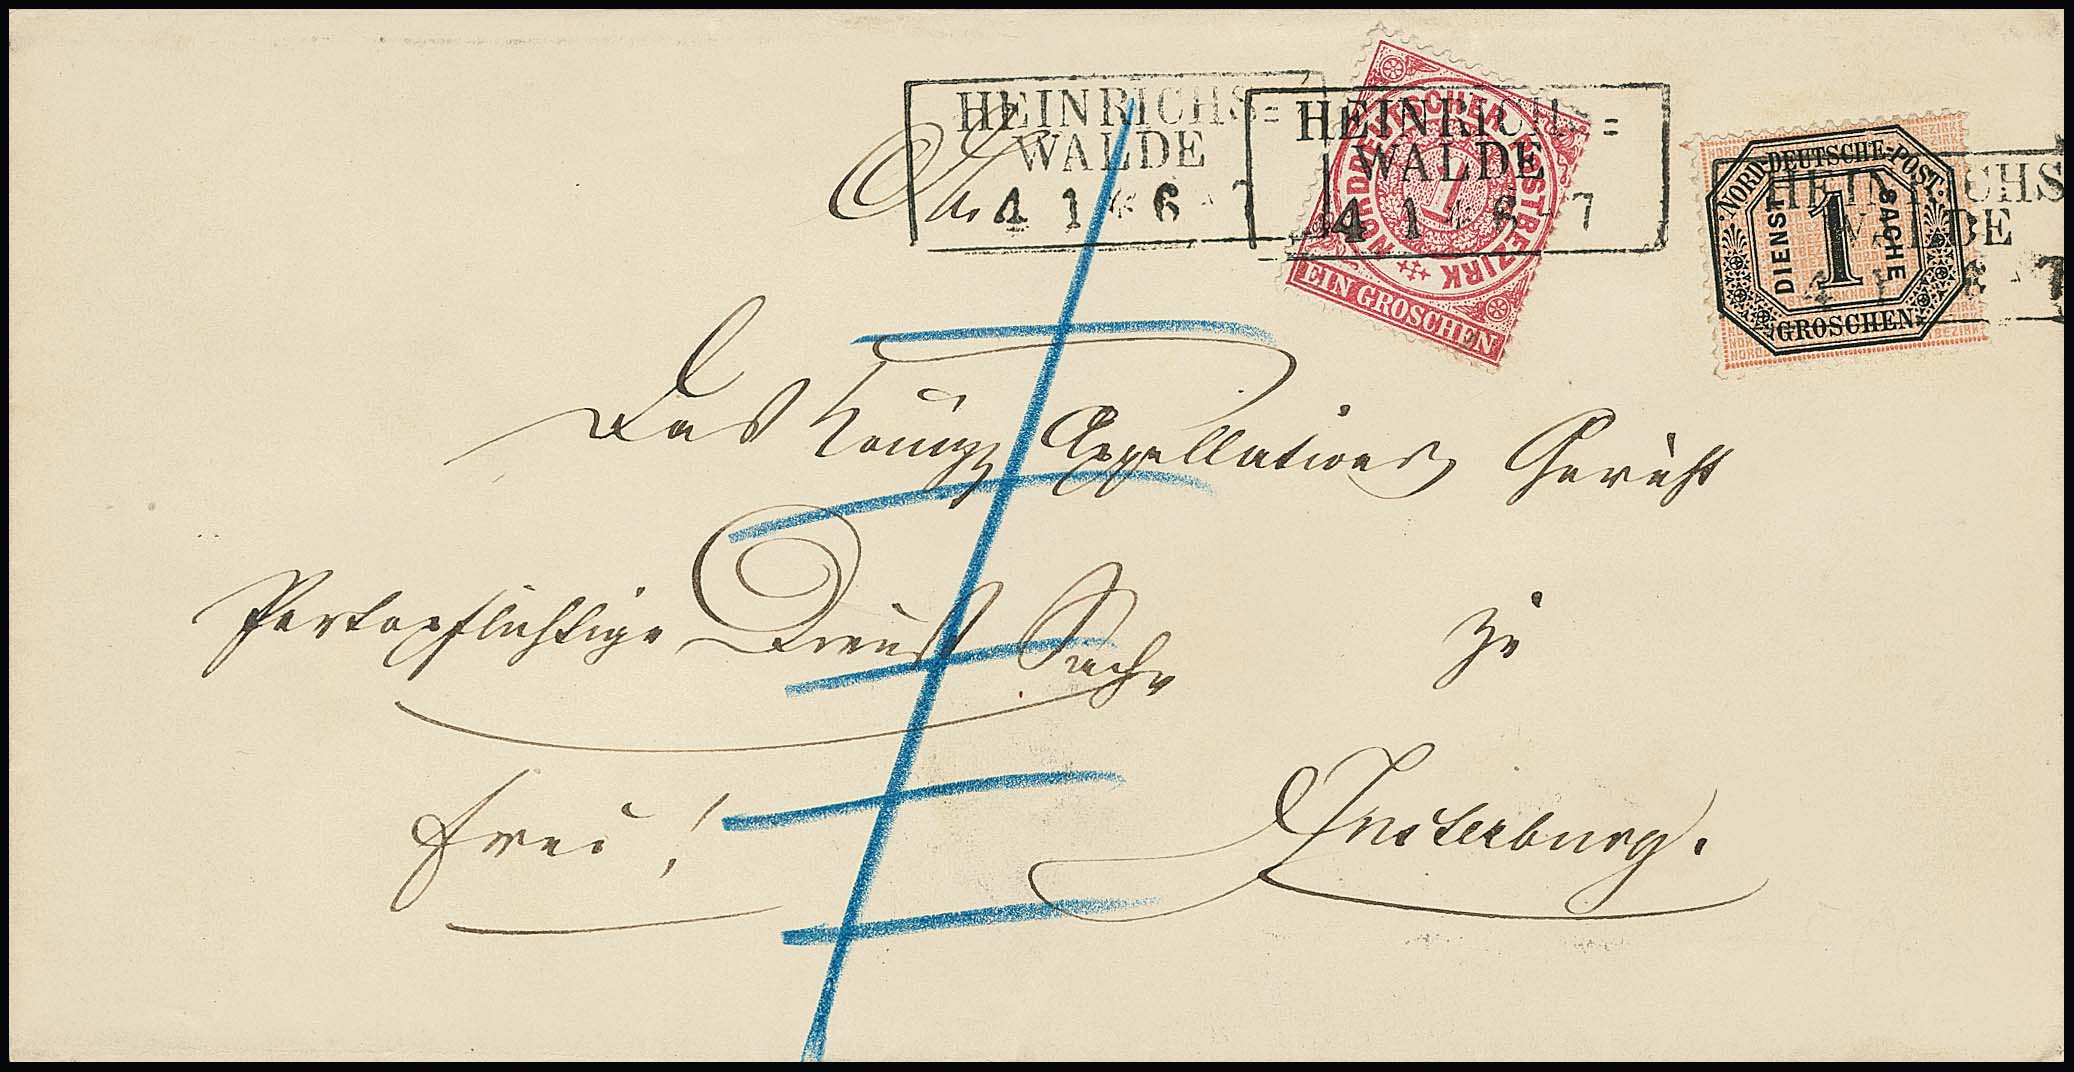 HEINRICHS=
WALDE
4 1 6-7
HEINRICHS=
WALDE
4 1 6-7
NORDDEUTSCHER POSTBEZIRK
1
EIN GROSCHEN
NORDDEUTSCHE POST
DIENST 1 SACHE
GROSCHEN
HEINRICHS
WALDE
4 1 6-7
An
Das Königl Appellations Gericht
Portopflichtige Dienst Sache zu
frei! Insterburg.